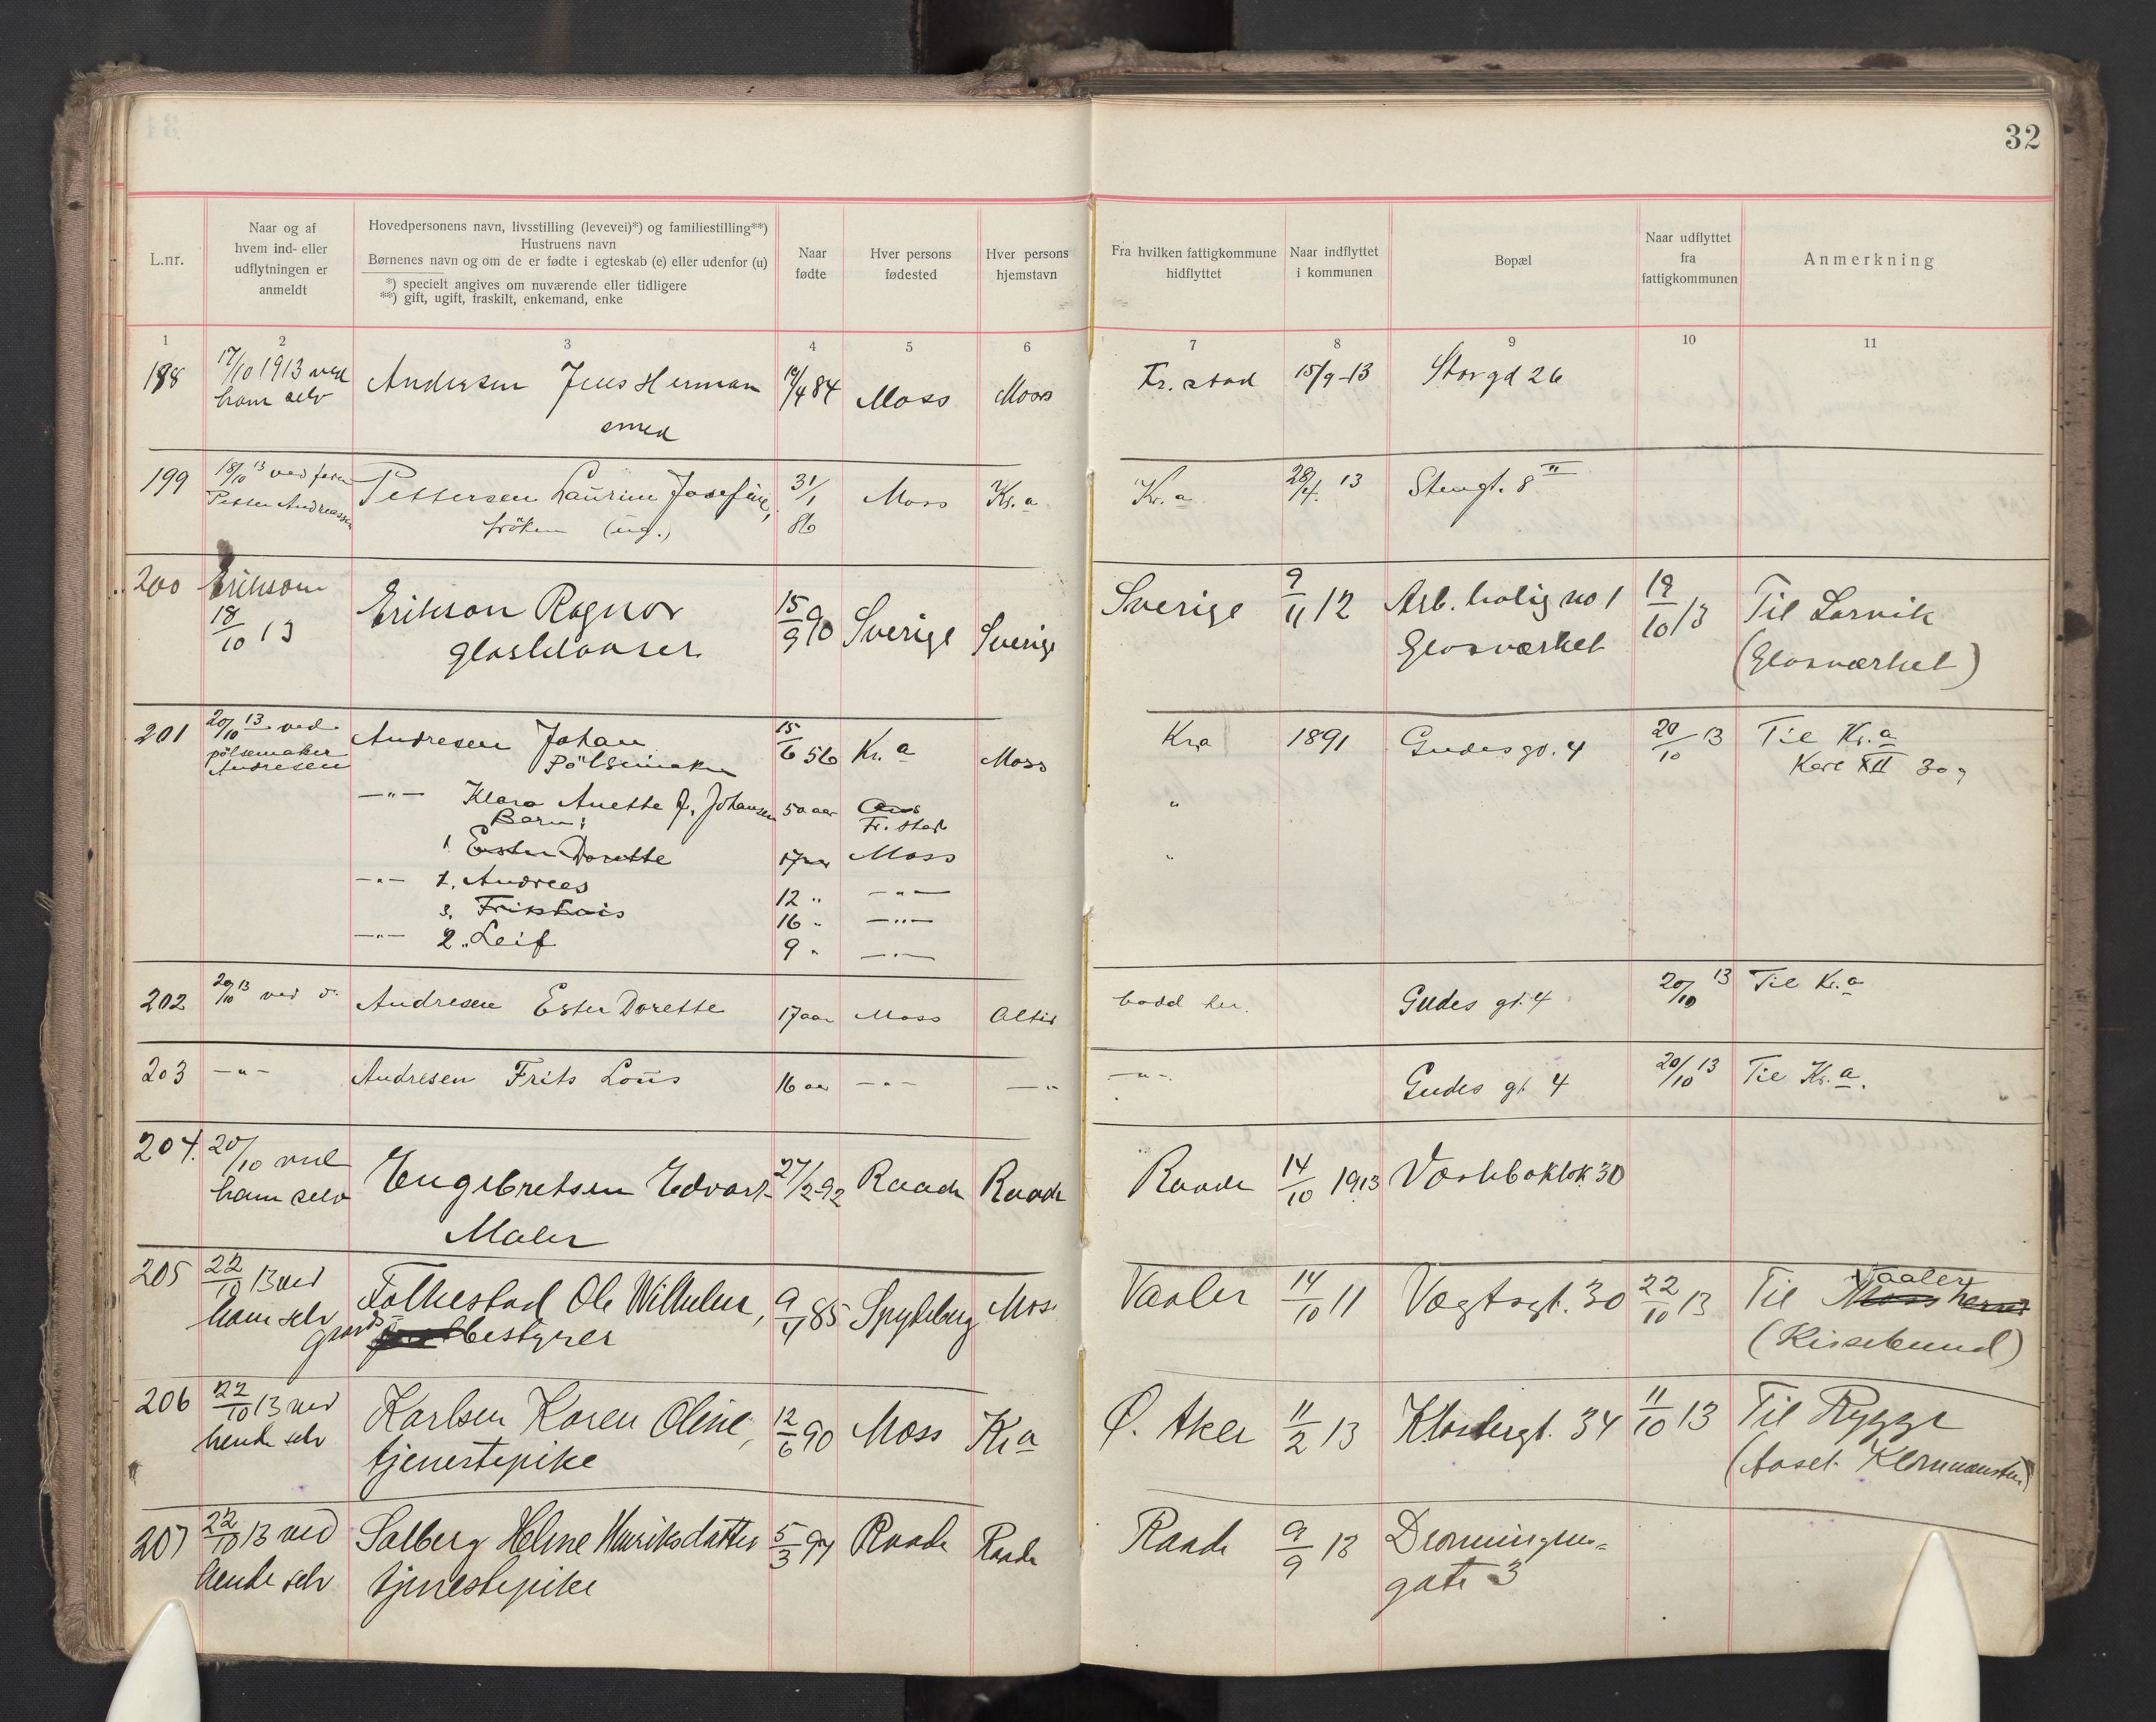 32
L.nr.
Naar og af
hvem ind- eller
udflytningen er
anmeldt
Hovedpersonens navn, livsstilling (levevei)*) og familiestilling**)
Hustruens navn
Børnenes navn og om de er fødte i egteskab (e) eller udenfor (u)
*) specielt angives om nuværende eller tidligere
**) gift, ugift, fraskilt, enkemand, enke
Naar
fødte
Hver persons
fødested
Hver persons
hjemstavn
Fra hvilken fattigkommune
hidflyttet
Naar indflyttet
i kommunen
Bopæl
Naar udflyttet
fra
fattigkommunen
Anmerkning
1 2 3 4 5 6 7 8 9 10 11
198 17/10 1913 ved Andersen Jens Herman 19/4 84 Moss Moss Fr.stad 15/9-13 Storgd 26
ham selv
smed
199 18/10 13 ved Pettersen Laurine Josefine, 31/1 86 Moss Kr.a Kr.a 28/4. 13 Stengt. 8 II
Petter Andreassen frøken (ug.)
200 Erikson Erikson Ragnar 15/9 90 Sverige Sverige Sverige 9/11 12 Arb.bolig no 1 18/10 13 Til Larvik
18/10 13 glasblaaser Glasværket (Glasværket)
201 20/10 13 ved Andresen Johan 15/6 56 Kr.a Moss Kra 1891 Gudesgd. 4 20/10 13 Til Kr.a
pølsemaker Pølsemaker Karl XII 30
Andresen
—"— Klara Anette f. Johansen 50 aar Fr.stad "
Barn:
1 Ester Dorette 17 aar Moss "
—"— 1. Andreas 12 " —"—
3. Frits Louis 16 " —"—
—"— 2. Leif 9 " —"—
202 20/10 13 ved d. Andresen Ester Dorette 17 aar Moss Altid bodd her. Gudes gt. 4 20/10 13 Til Kr.a
203 —"— Andresen Frits Louis 16 aar —"— —"— —"— Gudes gt 4 20/10 13 Til Kr.a.
204. 20/10 ved Engebretsen Edvart 27/2-92 Raade Raade Raade 14/10 1913 30
ham selv Maler
205 22/10 13 ved Folkestad Ole Wilhelm, 9/4 85 Spydeberg Moss Vaaler 14/10 11 Vogtsgt. 30 22/10 13 Til Moss herred Vaaler
ham selv gaardsbestyrer (Kissebund)
206 22/10 13 ved Karlsen Karen Oline, 12/6 90 Moss Kra Ø. Aker 11/2 13 Klostergt. 34 11/10 13 Til Rygge
hende selv tjenestepike
207 22/10 13 ved Solberg Helene Henriksdatter 5/3 97 Raade Raade Raade 9/9 13 Dronningens-
hende selv tjenestepike gate 3